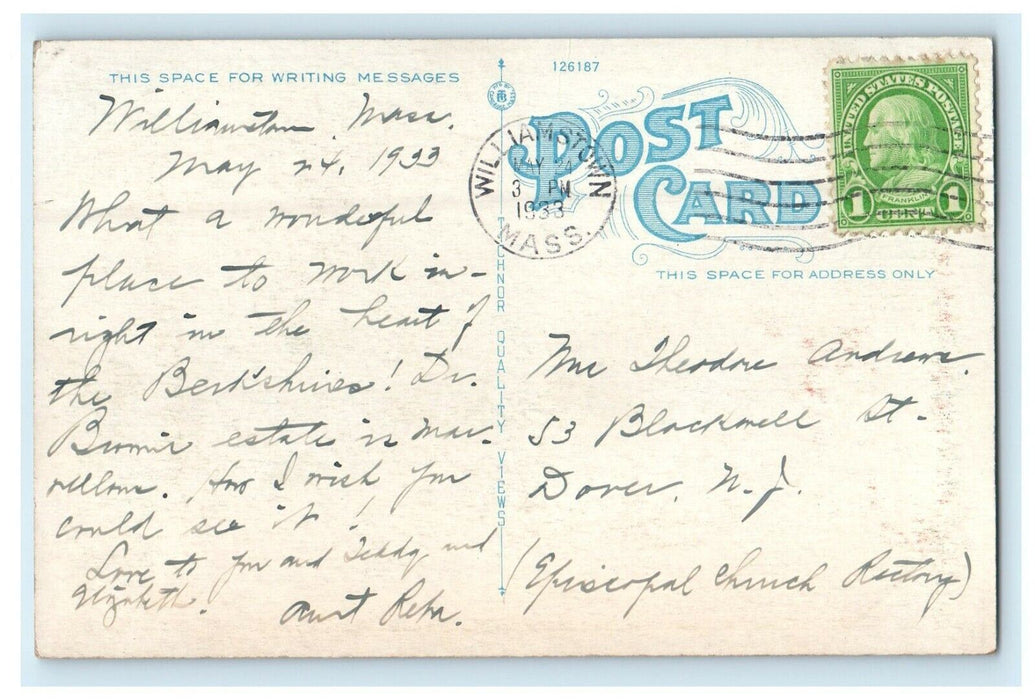 THIS SPACE FOR WRITING MESSAGES
Williamstown, Mass.
May 24, 1933
What a wonderful
place to work in -
right in the heart of
the Berkshires! Dr.
estate is mar-
vellous. How I wish you
could see it!
Love to you and Teddy and
Elizabeth.
Aunt Reba.
TECHNOR QUALITY VIEWS
126187
POST
CARD
WILLIAMSTOWN
MAY 24
3 PM
1933
MASS.
UNITED STATES POSTAGE
1 FRANKLIN 1
THIS SPACE FOR ADDRESS ONLY
Mrs Theodore Andrews.
53 Blackwell St.
Dover, N. J.
(Episcopal Church Rectory)